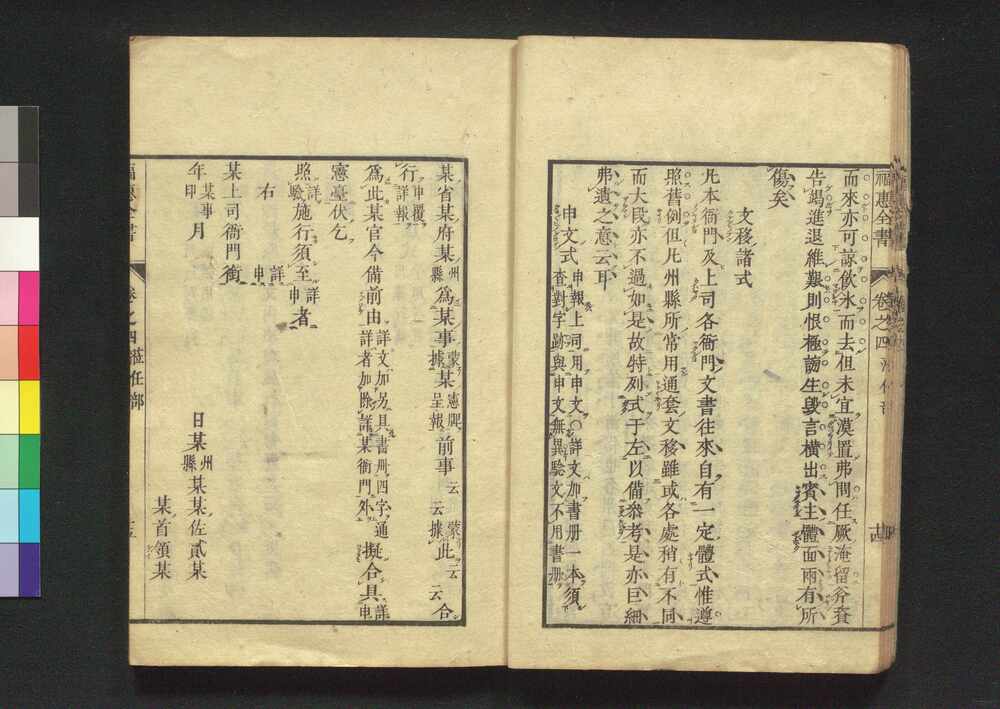 福惠全書 卷之四 十四
而來亦可諒飲氷而去但未宜漠置弗問任厥淹留斧資
告竭進退維艱則恨極謗生毀言橫出賓主體面兩有所
傷矣
文移諸式
凡本衙門及上司各衙門文書往來自有一定體式惟遵
照舊例但凡州縣所常用通套文移雖或各處稍有不同
而大段亦不過如是故特列式于左以備參考是亦巨細
弗遺之意云耳
申文式 申報上司用申文〇詳文加書册一本須
查對字跡與申文無異驗文不用書册
某省某府某州縣爲某事蒙據某憲牌呈報前事云云蒙據此云云合
行申覆詳報
爲此某官今備前由詳文加另具書册四字通詳者加除詳某衙門外擬合具詳申
憲臺伏乞
照詳驗施行須至詳申者
右 詳申
某上司衙門銜
年某事印月 日某州縣某某佐貳某
某首領某
福惠全書 卷之四 蒞任部 十五